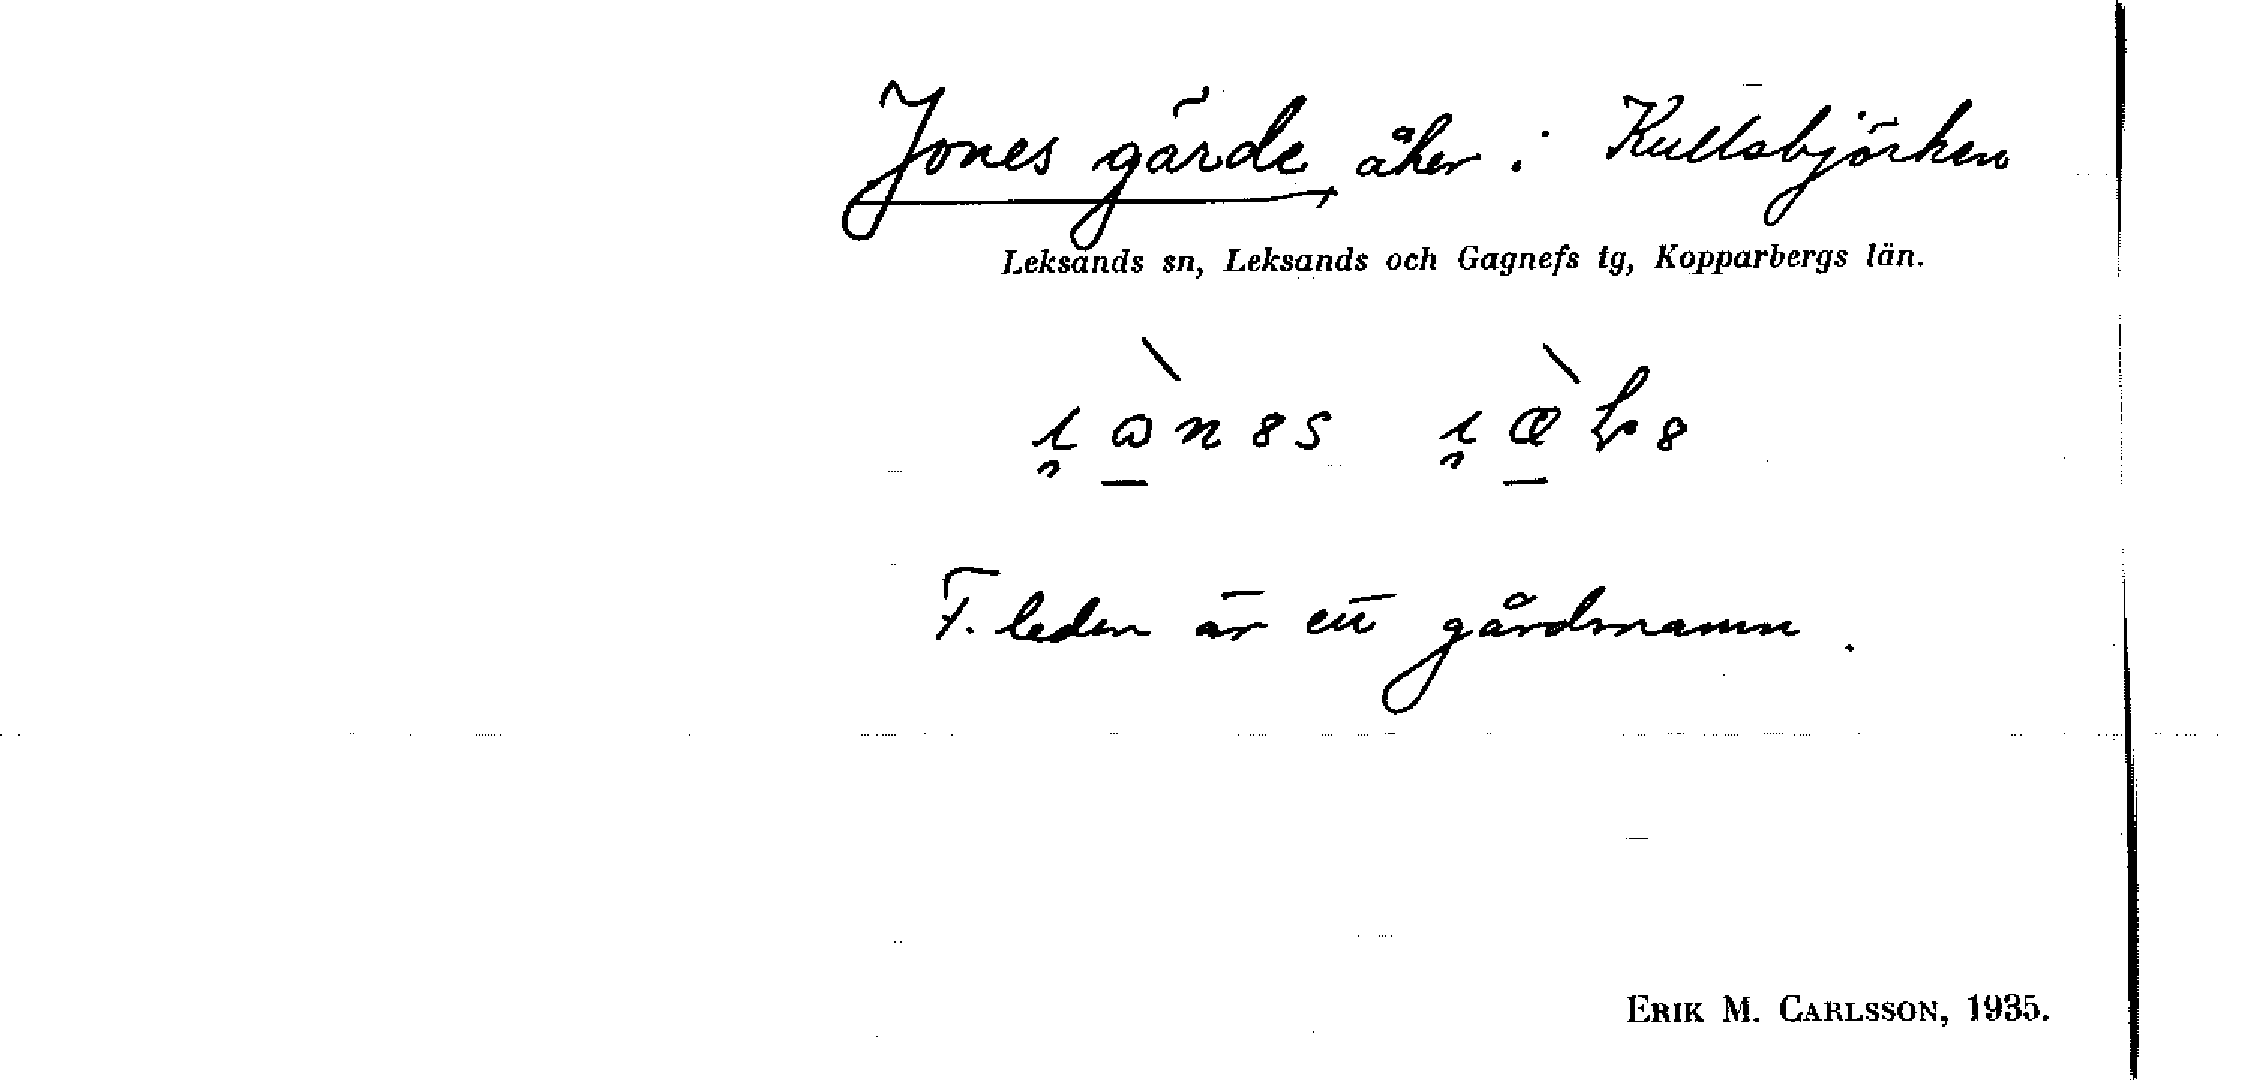 Jones gärde åker i Kullsbjörken
Leksands sn, Leksands och Gagnefs tg, Kopparbergs län.
F. leden är ett gårdsnamn.
ERIK M. CARLSSON, 1935.